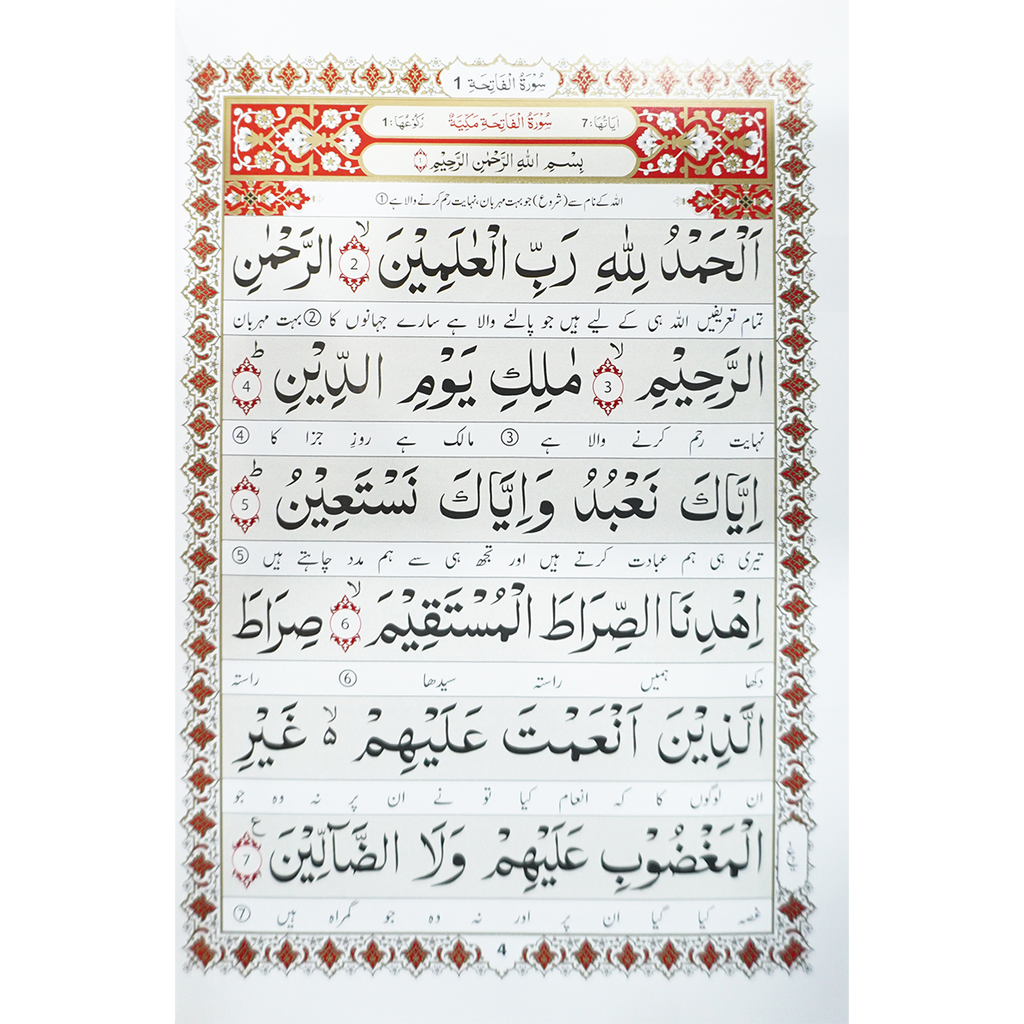 سُوْرَةُ الْفَاتِحَةِ 1
اٰيَاتُهَا: 7 سُوْرَةُ الْفَاتِحَةِ مَكِّيَّةٌ رُكُوْعُهَا: 1
بِسْمِ اللهِ الرَّحْمٰنِ الرَّحِيْمِ ۝۱
اللہ کے نام سے (شروع) جو بہت مہربان، نہایت رحم کرنے والا ہے ①
اَلْحَمْدُ لِلّٰهِ رَبِّ الْعٰلَمِيْنَ ۙ 2 الرَّحْمٰنِ
تمام تعریفیں اللہ ہی کے لیے ہیں جو پالنے والا ہے سارے جہانوں کا ② بہت مہربان
الرَّحِيْمِ ۙ 3 مٰلِكِ يَوْمِ الدِّيْنِ ؕ 4
نہایت رحم کرنے والا ہے ③ مالک ہے روزِ جزا کا ④
اِيَّاكَ نَعْبُدُ وَاِيَّاكَ نَسْتَعِيْنُ ؕ 5
تیری ہی ہم عبادت کرتے ہیں اور تجھ ہی سے ہم مدد چاہتے ہیں ⑤
اِهْدِنَا الصِّرَاطَ الْمُسْتَقِيْمَ ۙ 6 صِرَاطَ
دکھا ہمیں راستہ سیدھا ⑥ راستہ
الَّذِيْنَ اَنْعَمْتَ عَلَيْهِمْ ۙ۵ غَيْرِ
ان لوگوں کا کہ انعام کیا تو نے ان پر نہ وہ جو
الْمَغْضُوْبِ عَلَيْهِمْ وَلَا الضَّآلِّيْنَ ع 7
غصہ کیا گیا ان پر اور نہ وہ جو گمراہ ہیں ⑦
4